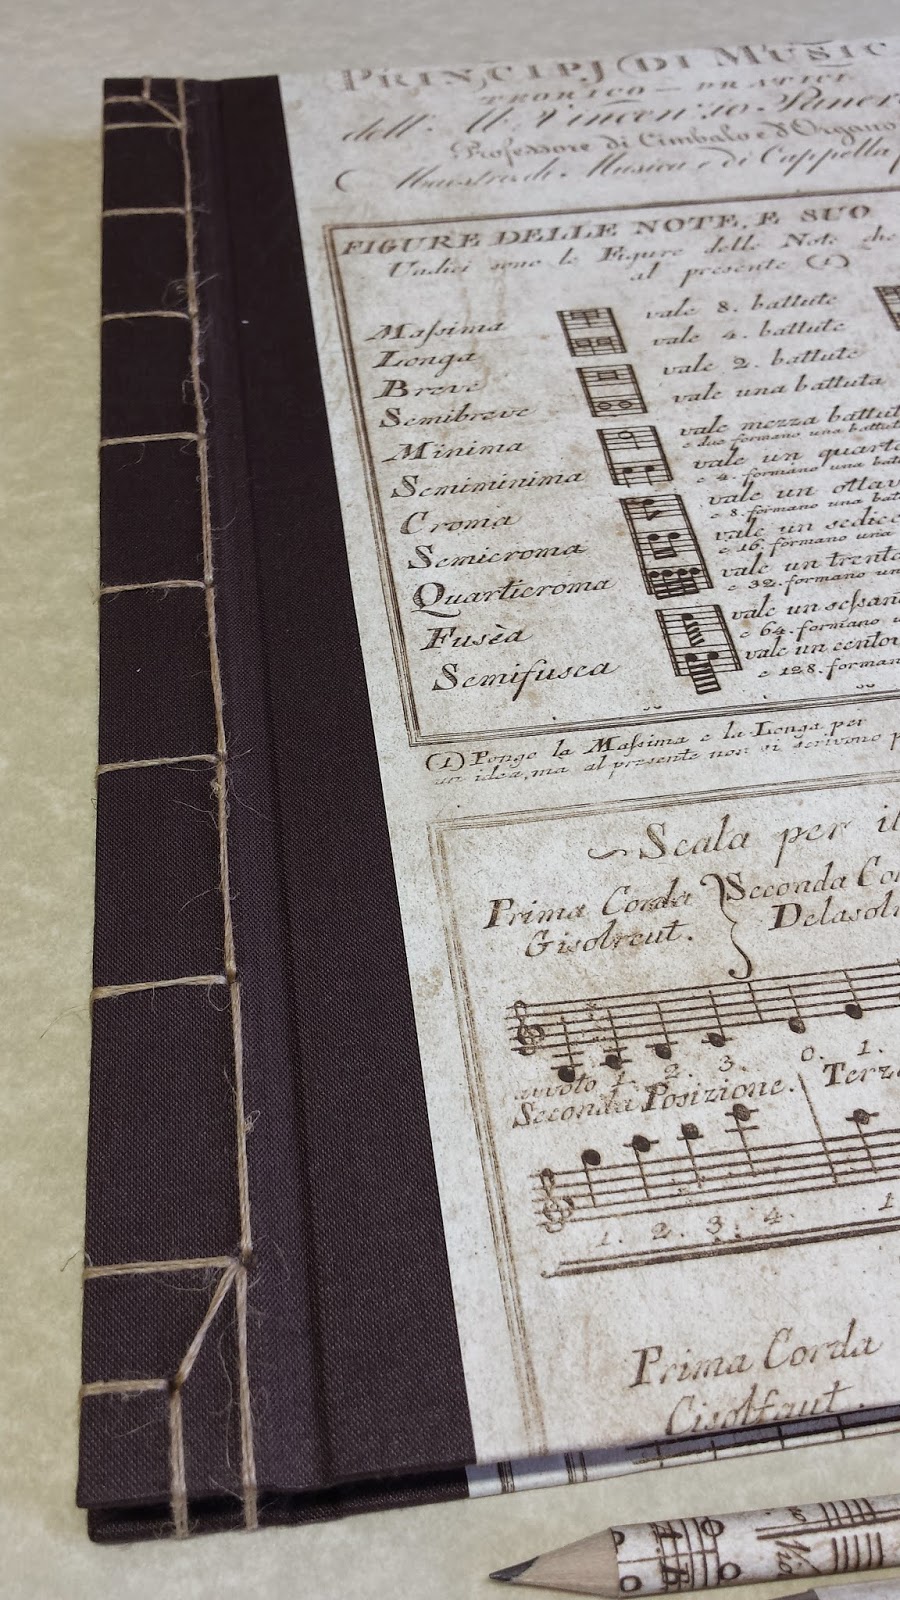 PRINCIPJ DI MUSIC
TEORICO — PRATICI
dell. M. Vincenzio Paner
Professore di Cimbalo e d'Organo
Maestro di Musica e di Cappella
FIGURE DELLE NOTE, E SUO
Undici sono le Figure delle Note che
al presente (1)
Maſsima vale 8. battute
Longa vale 4. battute
Breve vale 2. battute
Semibreve vale una battuta
Minima vale mezza battut
e due formano una battut
Semiminima vale un quarto
e 4. formano una bat
Croma vale un ottav
e 8. formano una bat
Semicroma vale un sedic
e 16. formano una
Quarticroma vale un trente
e 32. formano un
Fusèa vale un seſsan
e 64. formano
Semifusea vale un cento
e 128. forman
(1) Pongo la Maſsima e la Longa per
un idea, ma al presente non si scrivono p
Scala per il
Prima Corda Seconda Co
Gisolreut. Delasolr
vuoto 1. 2. 3. 0. 1.
Seconda Posizione. Terz
1. 2. 3. 4. 1
Prima Corda
Cisolfaut.